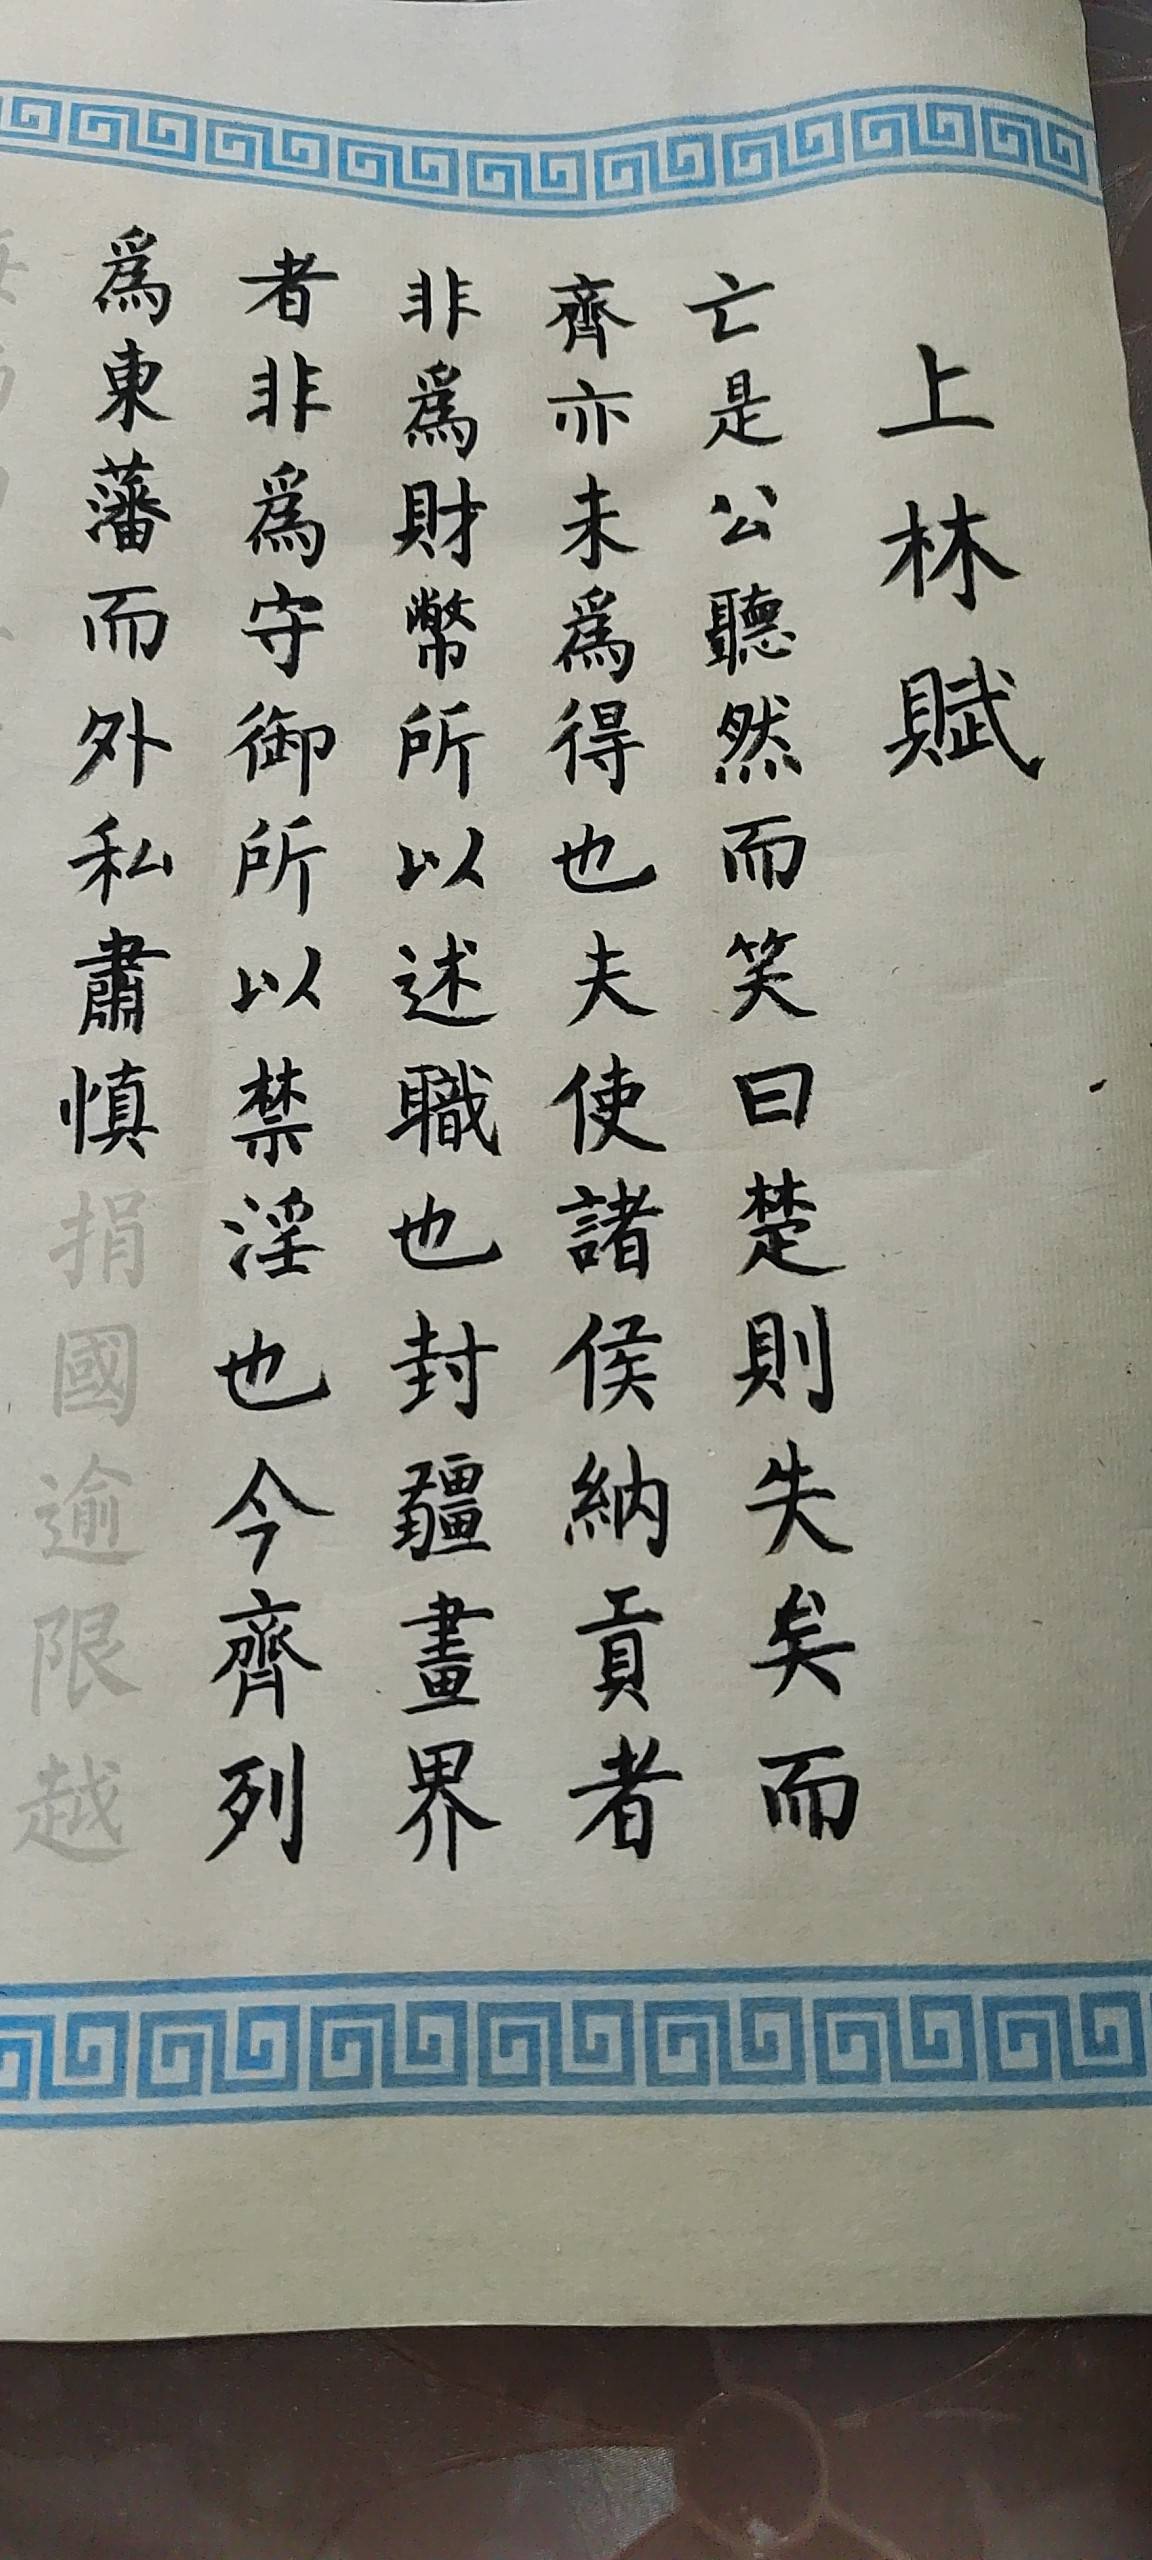 上林賦
亡是公聽然而笑曰楚則失矣而
齊亦未為得也夫使諸侯納貢者
非為財幣所以述職也封疆畫界
者非為守御所以禁淫也今齊列
為東藩而外私肅慎捐國逾限越